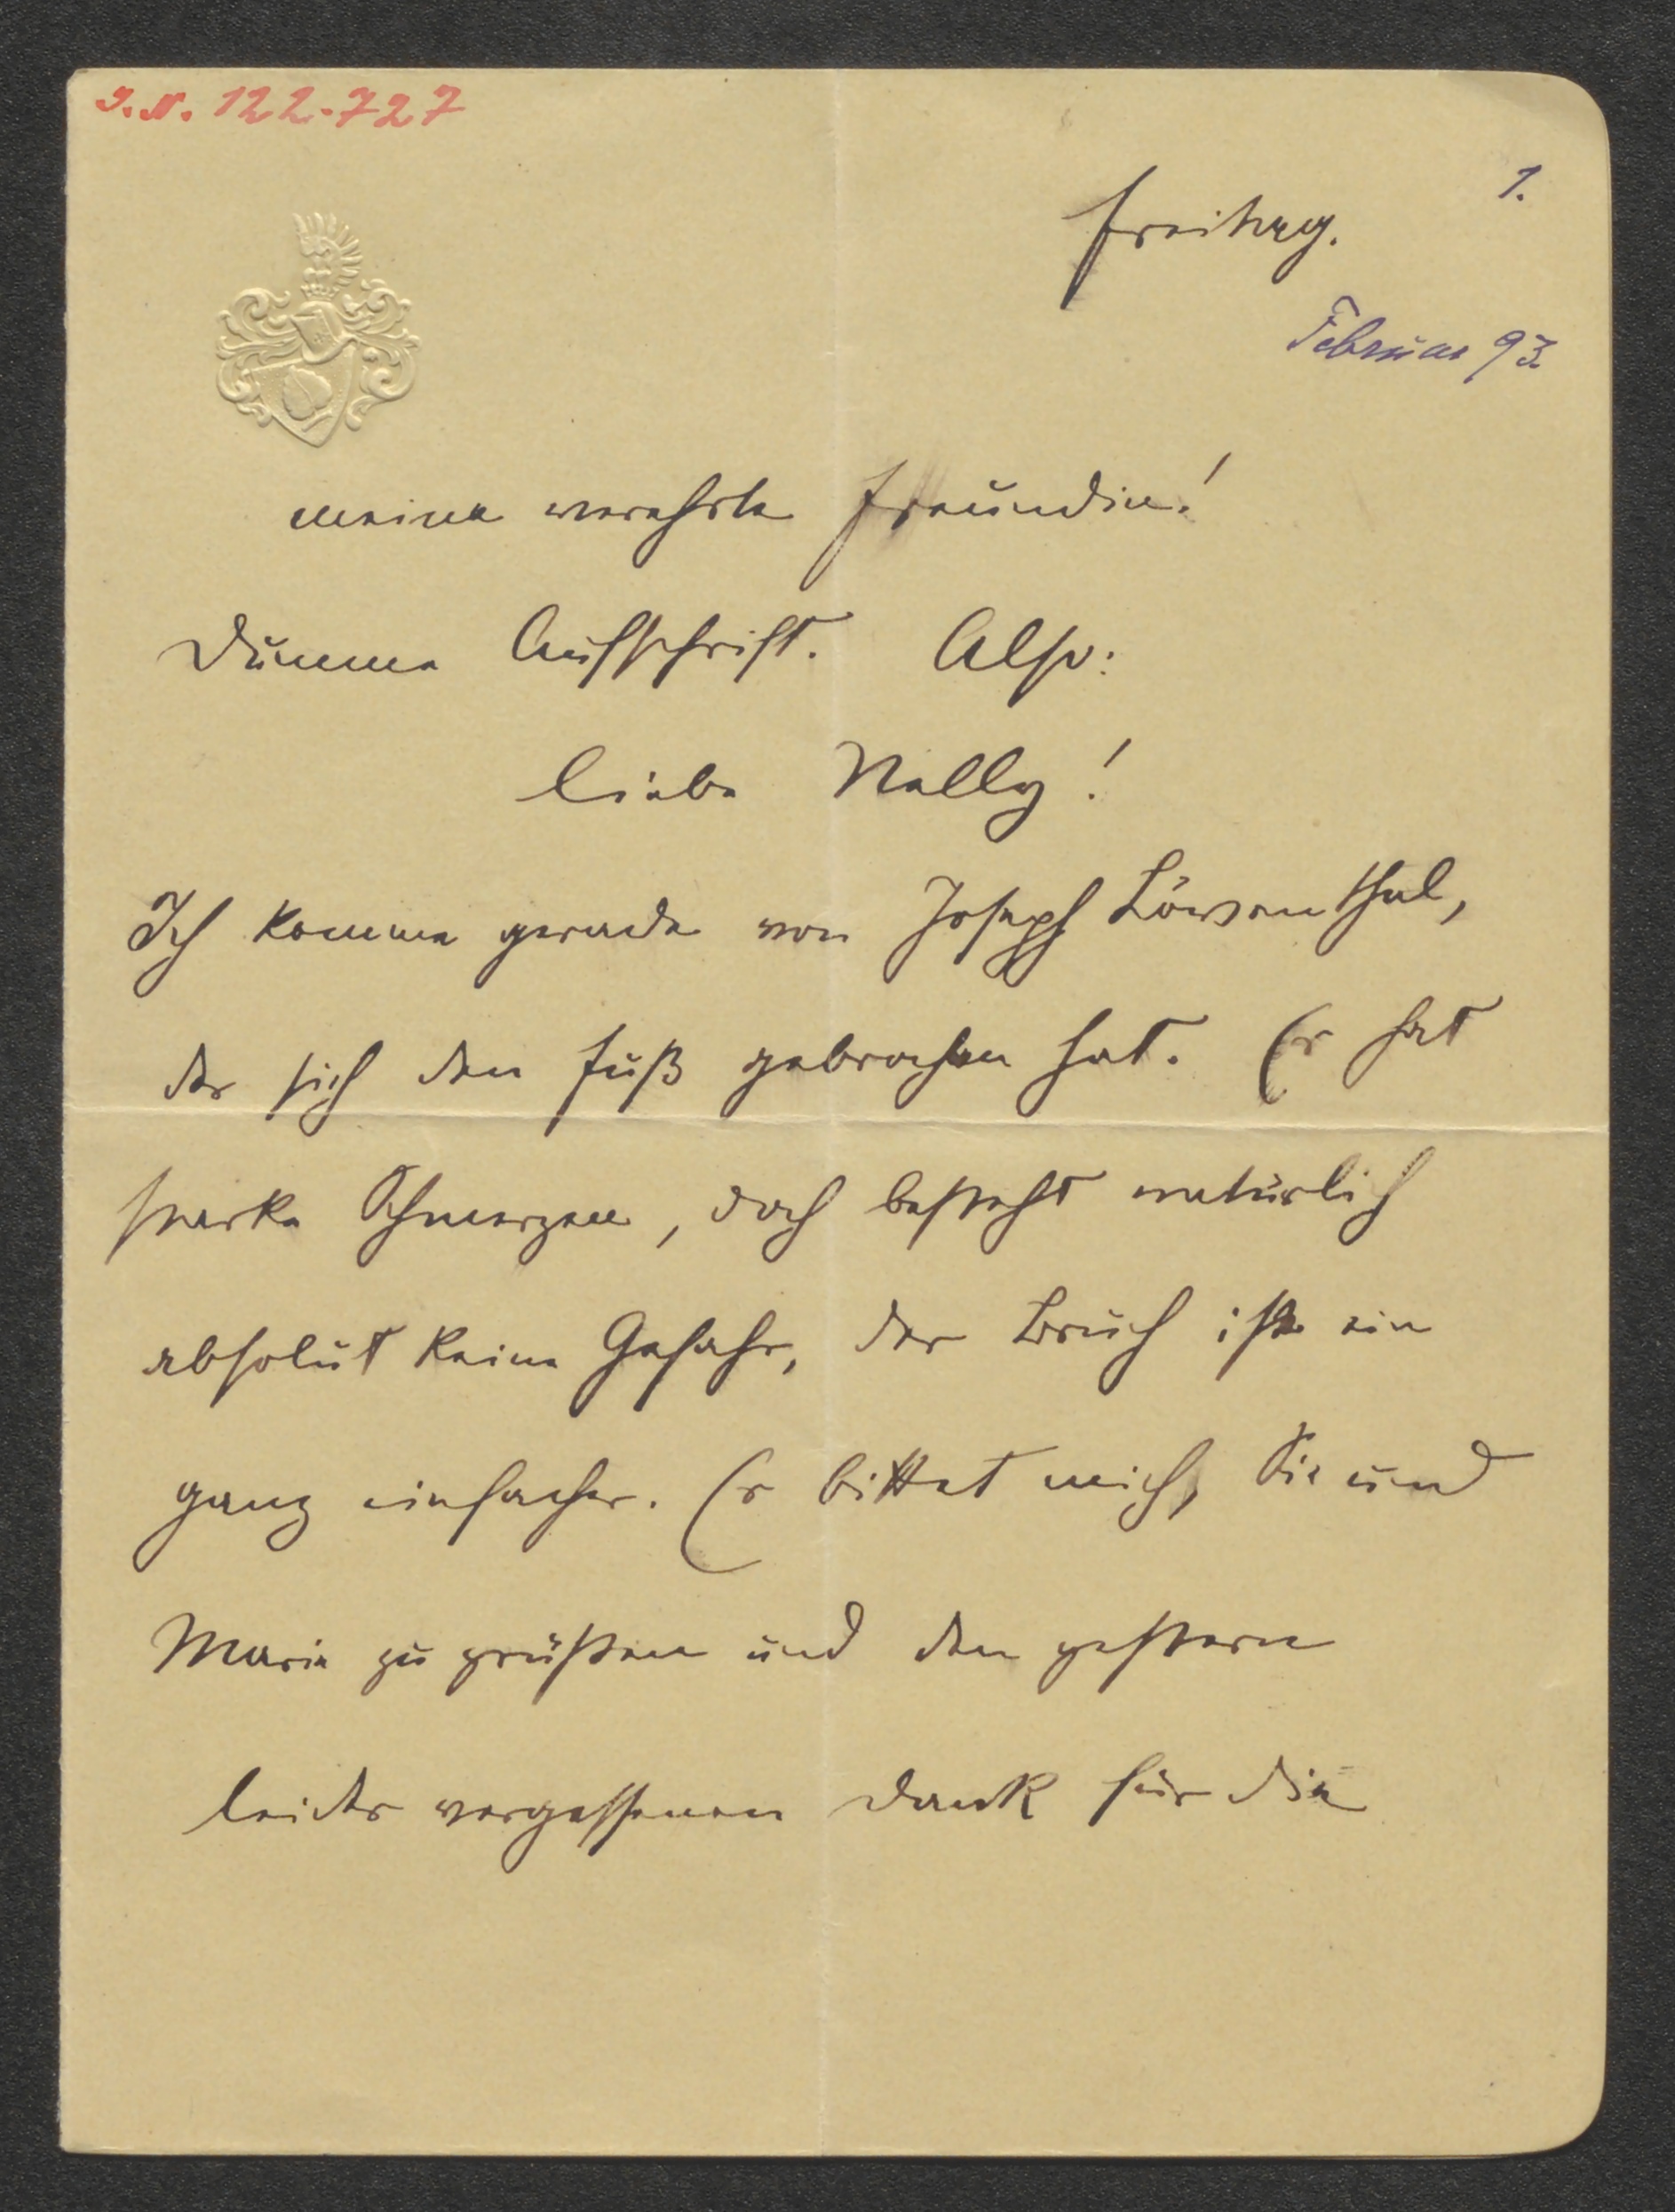 J.N. 122.727
1.
Freitag.
Februar 93.
meine verehrte Freundin!
Dumme Aufschrift. Also:
liebe Nelly!
Ich komme gerade von Joseph Löwenthal,
der sich den Fuß gebrochen hat. Er hat
starke Schmerzen, doch besteht natürlich
absolut keine Gefahr, der Bruch ist ein
ganz einfacher. Er bittet mich, Sie und
Marie zu grüßen und den gestern
leider vergessenen Dank für die